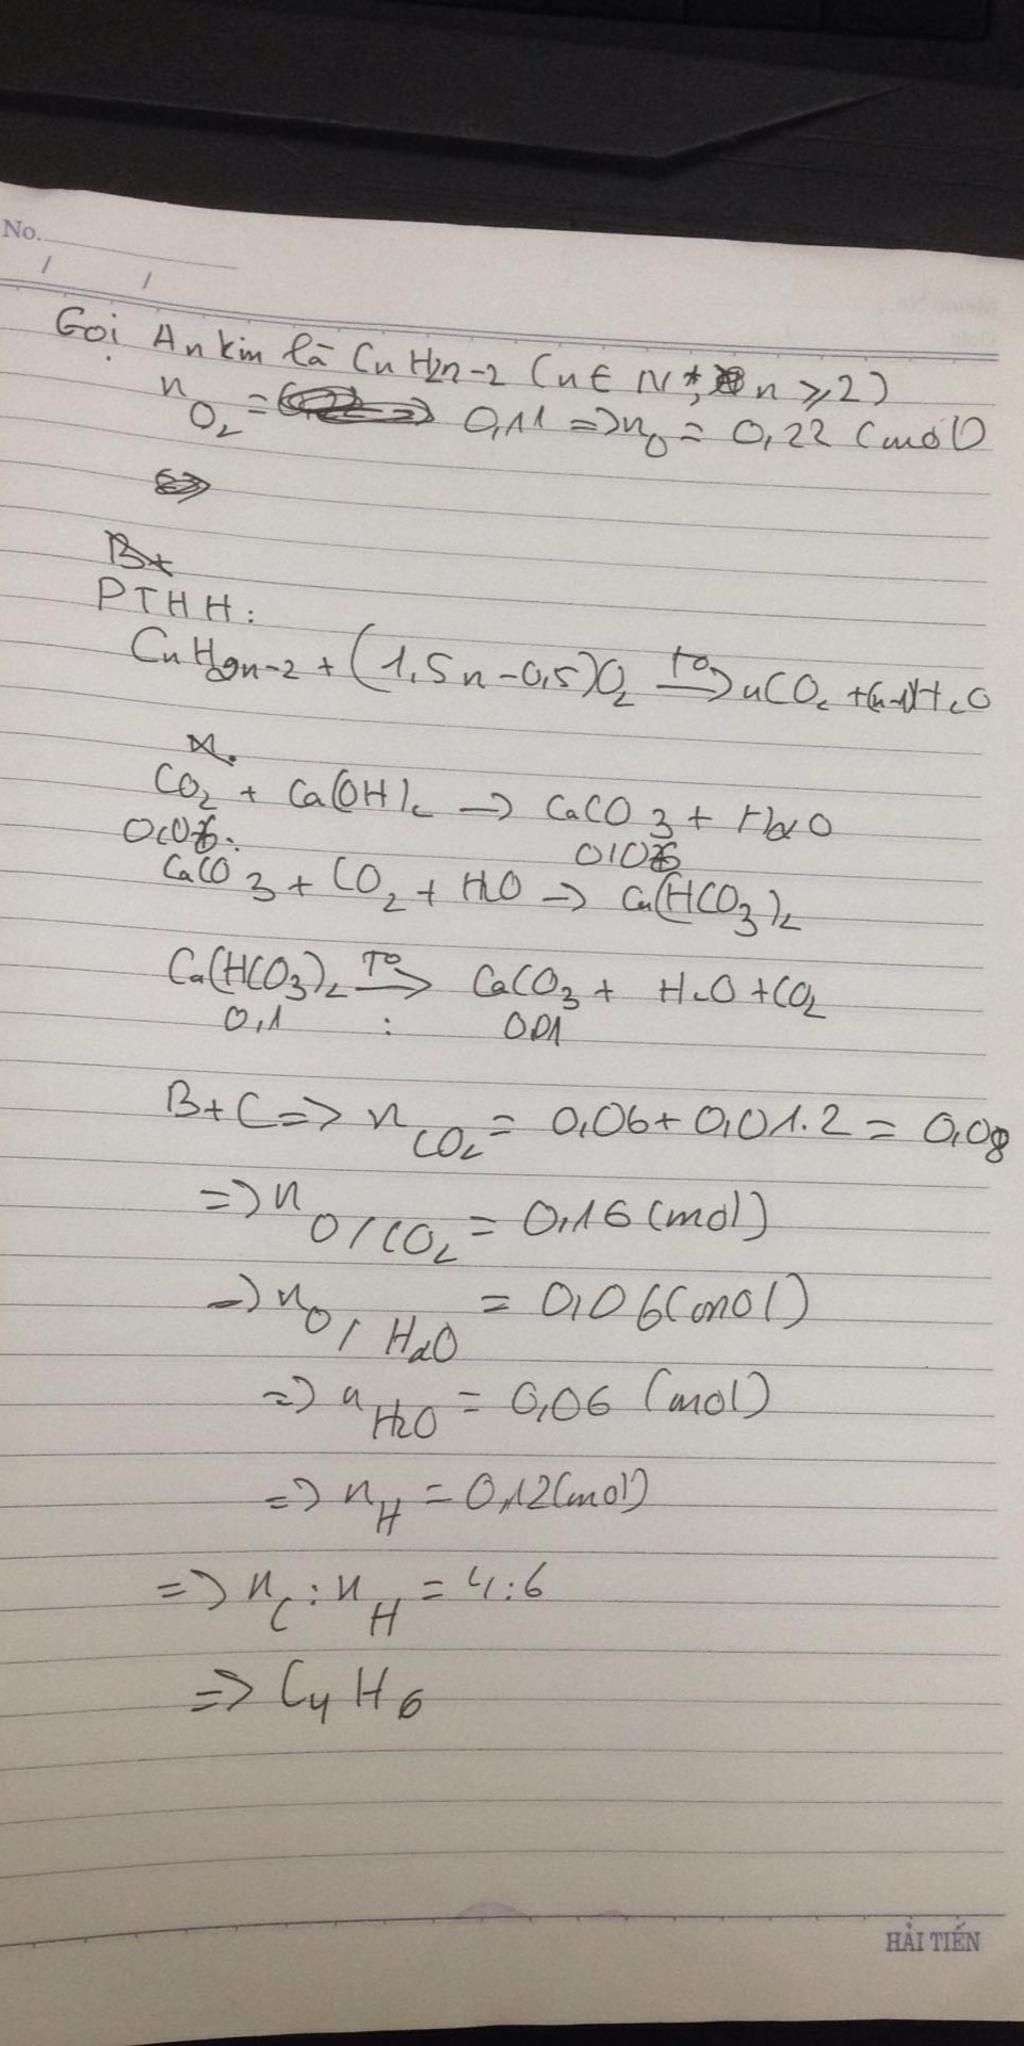 No.
/ /
Gọi Ankin là CnH2n-2 (n ∈ N*, n ⩾ 2)
nO2 = 0,11 => nO = 0,22 (mol)
PTHH:
CnH2n-2 + (1,5n-0,5)O2 -T°-> nCO2 + (n-1)H2O
CO2 + Ca(OH)2 -> CaCO3 + H2O
0,06 : 0,06
CaCO3 + CO2 + H2O -> Ca(HCO3)2
Ca(HCO3)2 -T°-> CaCO3 + H2O + CO2
0,1 : 0,01
B+C => nCO2 = 0,06 + 0,01.2 = 0,08
=> nO/CO2 = 0,16 (mol)
=> nO/H2O = 0,06 (mol)
=> nH2O = 0,06 (mol)
=> nH = 0,12 (mol)
=> nC : nH = 4:6
=> C4H6
HẢI TIẾN